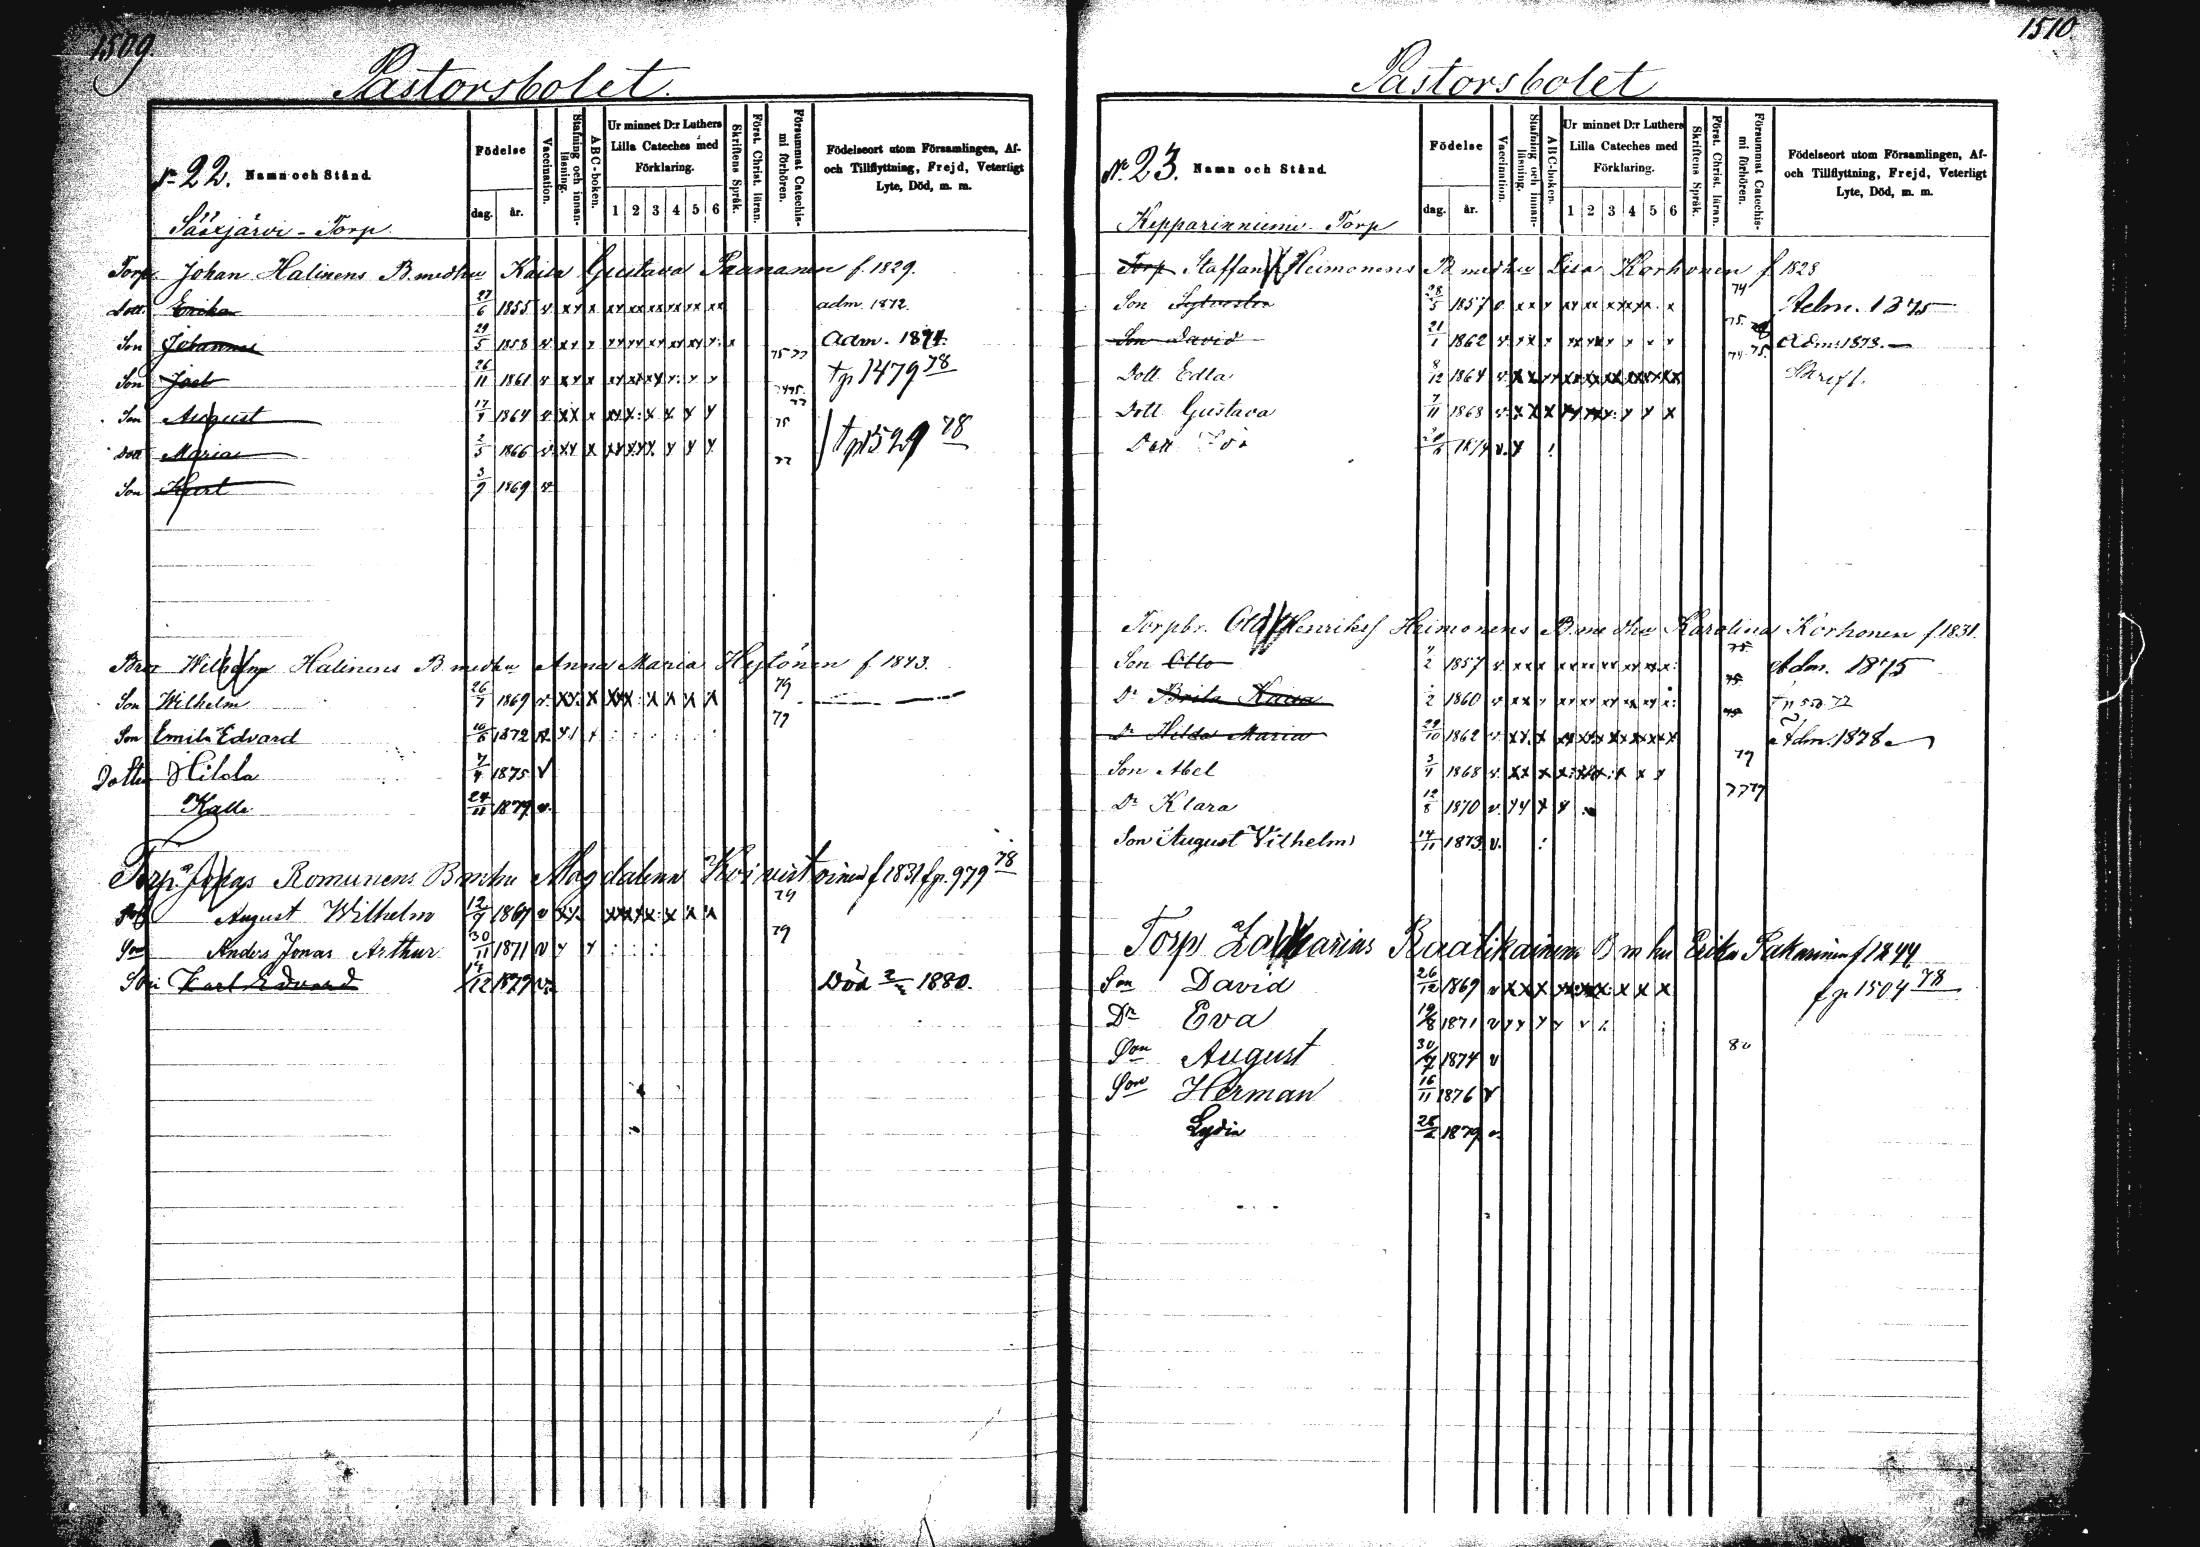 1509.
Pastorsbolet.
No 22. Namn och Stånd.
Födelse
dag. år.
Vaccination.
Stafning och innanläsning.
ABC-boken.
Ur minnet D:r Luthers Lilla Cateches med Förklaring.
1 2 3 4 5 6
Skriftens Språk.
Först. Christ. läran.
Försummat Catechismi förhören.
Födelseort utom Församlingen, Af- och Tillflyttning, Frejd, Veterligt Lyte, Död, m. m.
Torp.
Torp. Johan Halinens B. medhu Kaisa Gustava Paananen f. 1829.
Dott. Erika 27/6 1855 v adm. 1872.
Son Johannes 29/5 1858 v adm. 1874.
Son Joel 26/11 1861 v 75 77 tp 1479 78
Son August 17/4 1864 v 75
Dott Maria 2/5 1866 v 77 tp 1529 78
Son 3/9 1869 v
Bror Wilhelm Halinens B medhu Anna Maria Hytönen f. 1843.
Son Wilhelm 26/7 1869 v 79
Son Emil Edvard 1872 79
Dotter Hilda 7/4 1875 v
Kalle 24/11 1879 v.
Torp. Jonas Romunens B mhu Magdalena f 1831 fp. 979 78
August Wilhelm 12/9 1867 v 79
Son Anders Jonas Arthur 30/11 1871 v 79
Son Karl Edvard 14/12 1879 Död 1880.
1510.
Pastorsbolet
No 23. Namn och Stånd.
Födelse
dag. år.
Vaccination.
Stafning och innanläsning.
ABC-boken.
Ur minnet D:r Luthers Lilla Cateches med Förklaring.
1 2 3 4 5 6
Skriftens Språk.
Först. Christ. läran.
Försummat Catechismi förhören.
Födelseort utom Församlingen, Af- och Tillflyttning, Frejd, Veterligt Lyte, Död, m. m.
Kepparinniemi Torp
Torp Staffan Heimonens B medhu Lisa Korhonen f 1828
Son Sylvester 28/5 1857 74 Adm. 1875
Son David 21/1 1862 v 75. Adm. 1878.
Dott Edla 8/12 1864 v 74 75. Skrift.
Dott Gustava 7/11 1868 v
Dott 1874 v.
Torpbr. Henriks Heimonens B medhu Karolina Korhonen f. 1831.
Son Otto 1857 v 75 Adm. 1875
Dr Brita Kaisa 1860 v 75
Dr Hilda Maria 29/10 1862 v Adm. 1878
Son Abel 3/4 1868 v 79
Dr Klara 12/8 1870 v 77 79
Son August Vilhelm 14/11 1873 v.
Torp Zakarias Raatikainen B m hu Erika Pakarinen f 1844
Son David 26/12 1869 v fp 1504 78
Dr Eva 19/8 1871 v
Son August 30/7 1874 v 80
Son Herman 16/11 1876 v
Lydia 1879